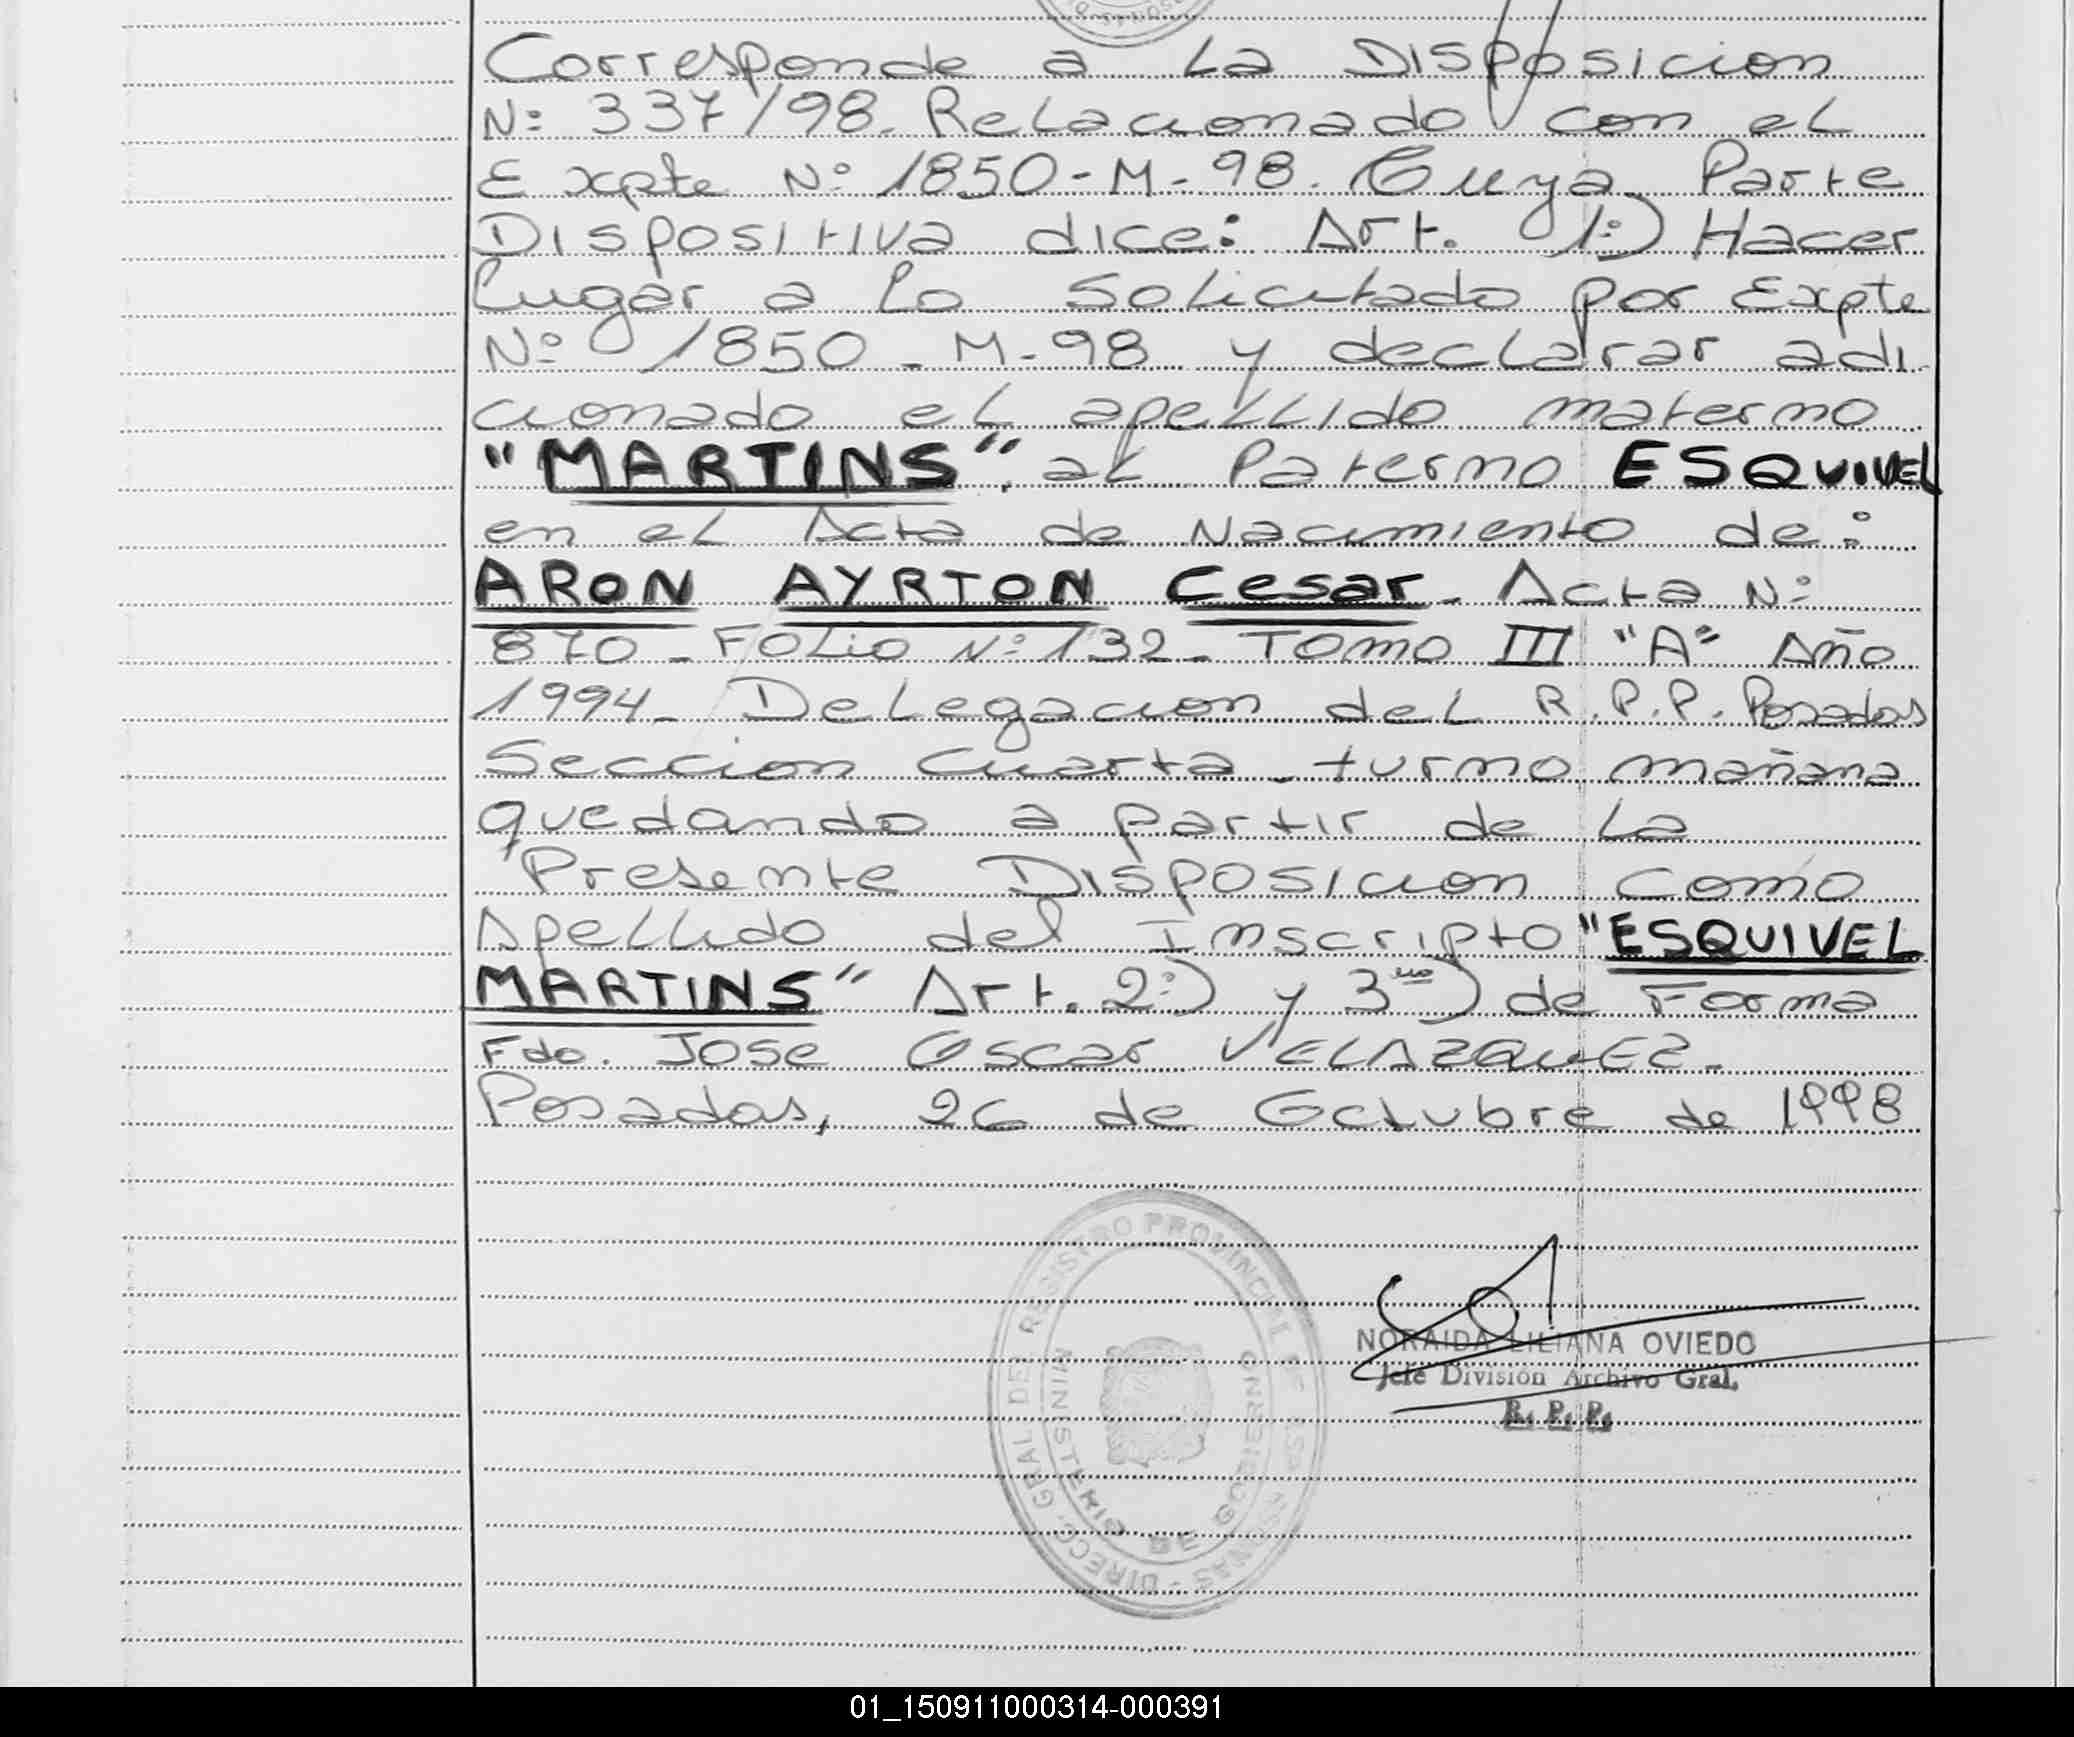 Corresponde a La Disposicion
Nº 337/98. Relacionado con el
Expte Nº 1850-M-98. Cuya Parte
Dispositiva dice: Art. 1º) Hacer
Lugar a Lo Solicitado por Expte
Nº 1850-M-98 y declarar adi
cionado el apellido materno
"MARTINS", al Paterno ESQUIVEL
en el Acta de Nacimiento de:
ARON AYRTON Cesar. Acta Nº
870 - Folio Nº 132 - Tomo III "A" Año
1994 - Delegacion del R.P.P. Posadas
Seccion Cuarta - turno mañana
quedando a partir de La
Presente Disposicion como
Apellido del Inscripto "ESQUIVEL
MARTINS" Art. 2º) y 3ero) de Forma
Fdo. Jose Oscar VELAZQUEZ.
Posadas, 26 de Octubre de 1998
DIRECC. GRAL DEL REGISTRO PROVINCIAL DE LAS PERSONAS -
MINISTERIO DE GOBIERNO
NORAIDA LILIANA OVIEDO
Jefe División Archivo Gral.
R. P. P.
01_150911000314-000391